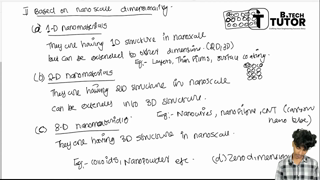 B.TECH
TUTOR
II Based on nanoscale dimensionality
(a) 1-D nanomaterials
They are having 1D structure in nanoscale
but can be extended to other dimension (2D/3D)
Eg:- Layers, Thin films, surface coating
(b) 2-D nanomaterials
They are having 2D structure in nanoscale
can be extends into 3D structure.
Eg:- Nanowires, nanofibres, CNT (carbon
nano tube)
(c) 3-D nanomaterials
They are having 3D structure in nanoscale.
Eg:- colloids, Nanopowder etc.
(d) Zero dimension